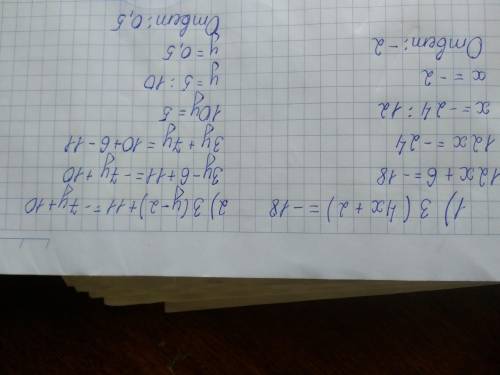 1) 3(4x+2)=-18
12x+6=-18
12x=-24
x=-24:12
x=-2
Ответ:-2
2) 3(y-2)+11=-7y+10
3y-6+11=-7y+10
3y+7y=10+6-11
10y=5
y=5:10
y=0,5
Ответ:0,5